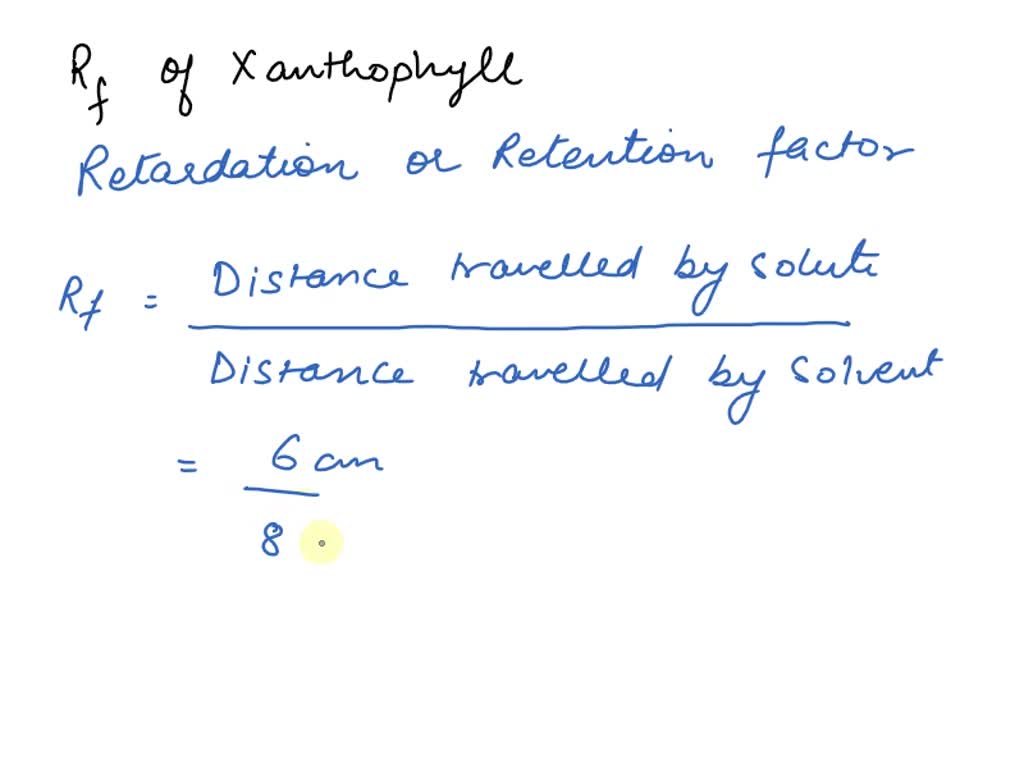 Rf of Xanthophyll
Retardation or Retention factor
Rf = Distance travelled by solute
Distance travelled by solvent
= 6 cm
8